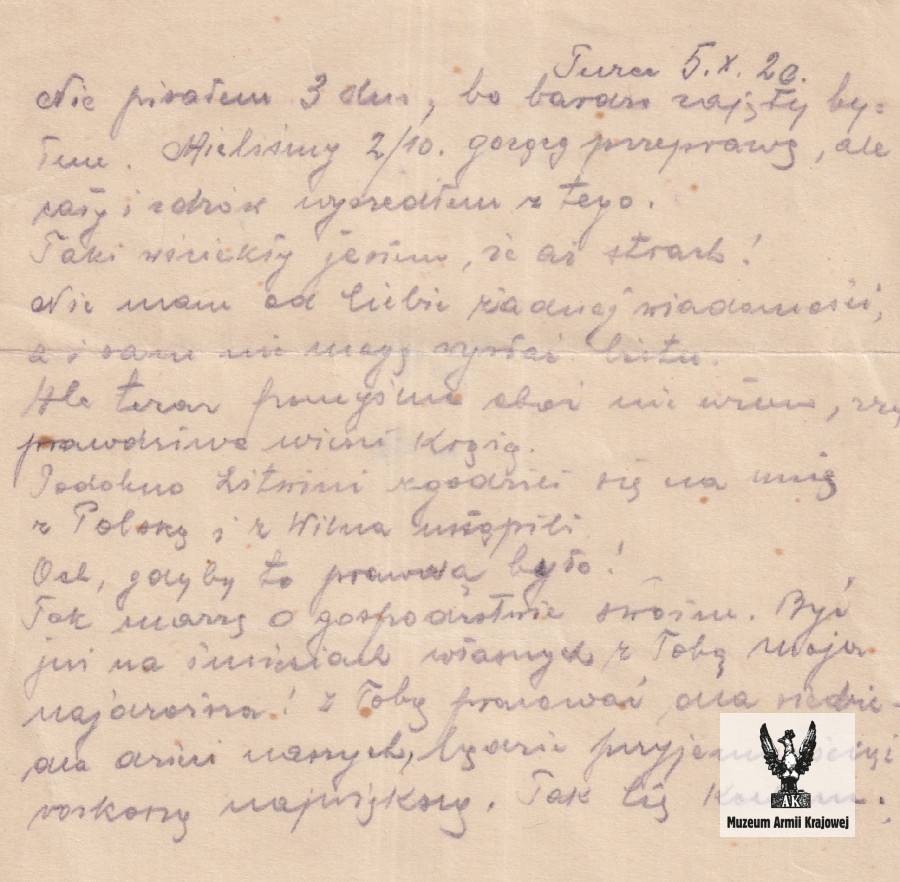 Turza 5.X.20.
Nie pisałem 3 dni, bo bardzo zajęty by=
łem. Mieliśmy 2/10. gorącą przeprawę, ale
cały i zdrów wyszedłem z tego.
Taki wściekły jestem, że aż strach!
Nie mam od Ciebie żadnej wiadomości,
a i sam nie mogę wysłać listu.
Ale teraz pomyślne choć nie wiem, czy
prawdziwe wieści krążą.
Podobno Litwini zgodzili się na unię
z Polską i z Wilna ustąpili.
Och, gdyby to prawdą było!
Tak marzę o gospodarstwie swoim. Być
już na śmieciach własnych z Tobą moja
najdroższa! Z Tobą pracować dla siebie
dla dzieci naszych, będzie
roskoszą największą. Tak Cię
AK
Muzeum Armii Krajowej